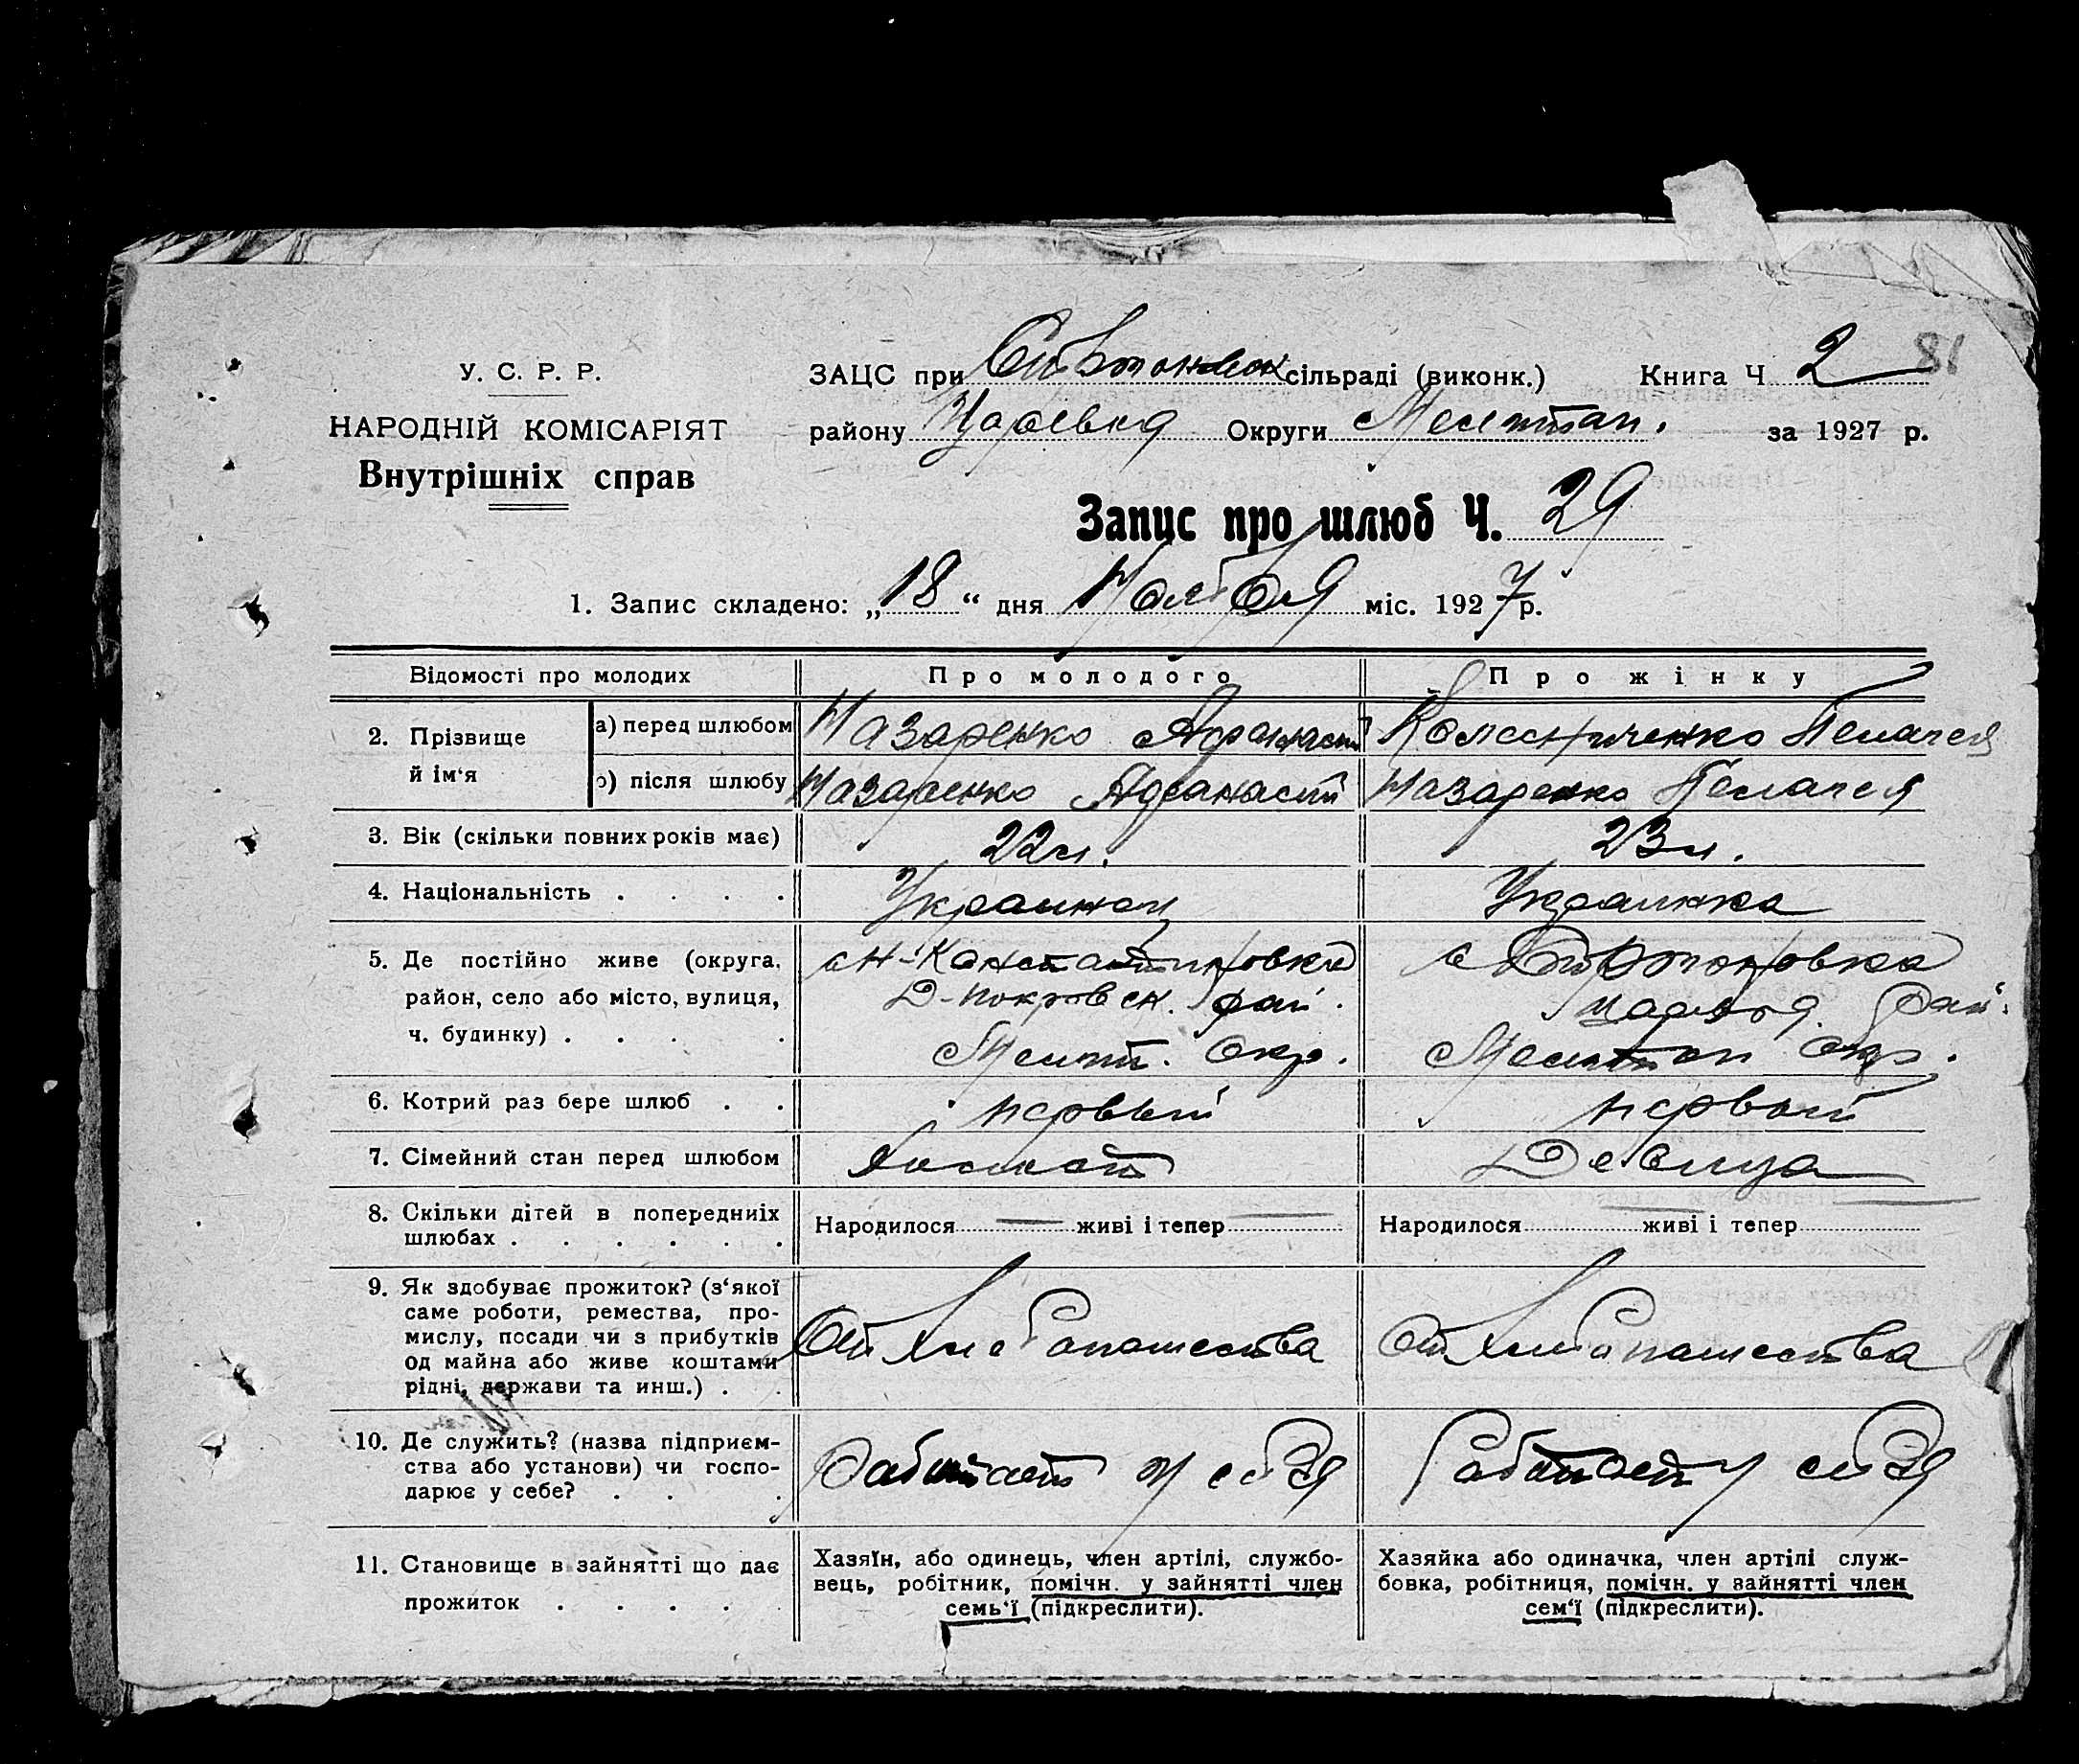 81
У. С. Р. Р.
НАРОДНІЙ КОМІСАРІЯТ
Внутрішніх справ
ЗАЦС при сільраді (виконк.) Книга Ч 2
району Царевод Округи Мелитоп. за 1927 р.
Запис про шлюб Ч. 29
1. Запис складено: „18“ дня Ноября міс. 1927 р.
Відомості про молодих Про молодого Про жінку
2. Прізвище й ім‘я
а) перед шлюбом Назаренко Афанасий Колесниченко Пелагея
б) після шлюбу Назаренко Афанасий Назаренко Пелагея
3. Вік (скільки повних років має) 22 л. 23 л.
4. Національність . . . . Украинец Украинка
5. Де постійно живе (округа,
район, село або місто, вулиця,
ч. будинку) . . . .
с Н-Константиновка
Д-Покровск. рай.
Мелит. Окр.
с
Царевод. Рай.
Мелитоп Окр.
6. Котрий раз бере шлюб . . первый первый
7. Сімейний стан перед шлюбом Холост Девица
8. Скільки дітей в попередніх
шлюбах . . . . . .
Народилося — живі і тепер — Народилося — живі і тепер —
9. Як здобуває прожиток? (з‘якої
саме роботи, ремества, про-
мислу, посади чи з прибутків
од майна або живе коштами
рідні, держави та инш.) . .
От Хлебопашества От Хлебопашества
10. Де служить? (назва підприєм-
ства або установи) чи госпо-
дарює у себе? . . .
Работает у себя Работает у себя
11. Становище в зайнятті що дає
прожиток . . . . .
Хазяїн, або одинець, член артілі, службо-
вець, робітник, помічн. у зайнятті член
семь‘ї (підкреслити).
Хазяйка або одиначка, член артілі служ-
бовка, робітниця, помічн. у зайнятті член
сем‘ї (підкреслити).